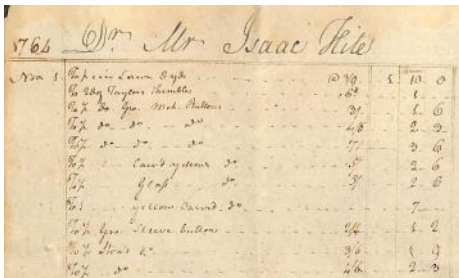 1764 Dr. Mr Isaac Hite
Nov 1 To Lawn @ 3/9 10 0
To Taylors Thimbles 1
To ½ do Gro. Buttons 3/ 1 6
To ½ do do do 4/6 2 3
To ½ do do do 7/ 3 6
To ½ Carv'd yellow do 5/ 2 6
To ½ Glass do 5/ 2 6
To 1 yellow Carv'd do 7
To ½ Gro. Sleeve buttons 2/4 1 2
To ½ do 3/6 1 9
To ½ do 4/6 2 3